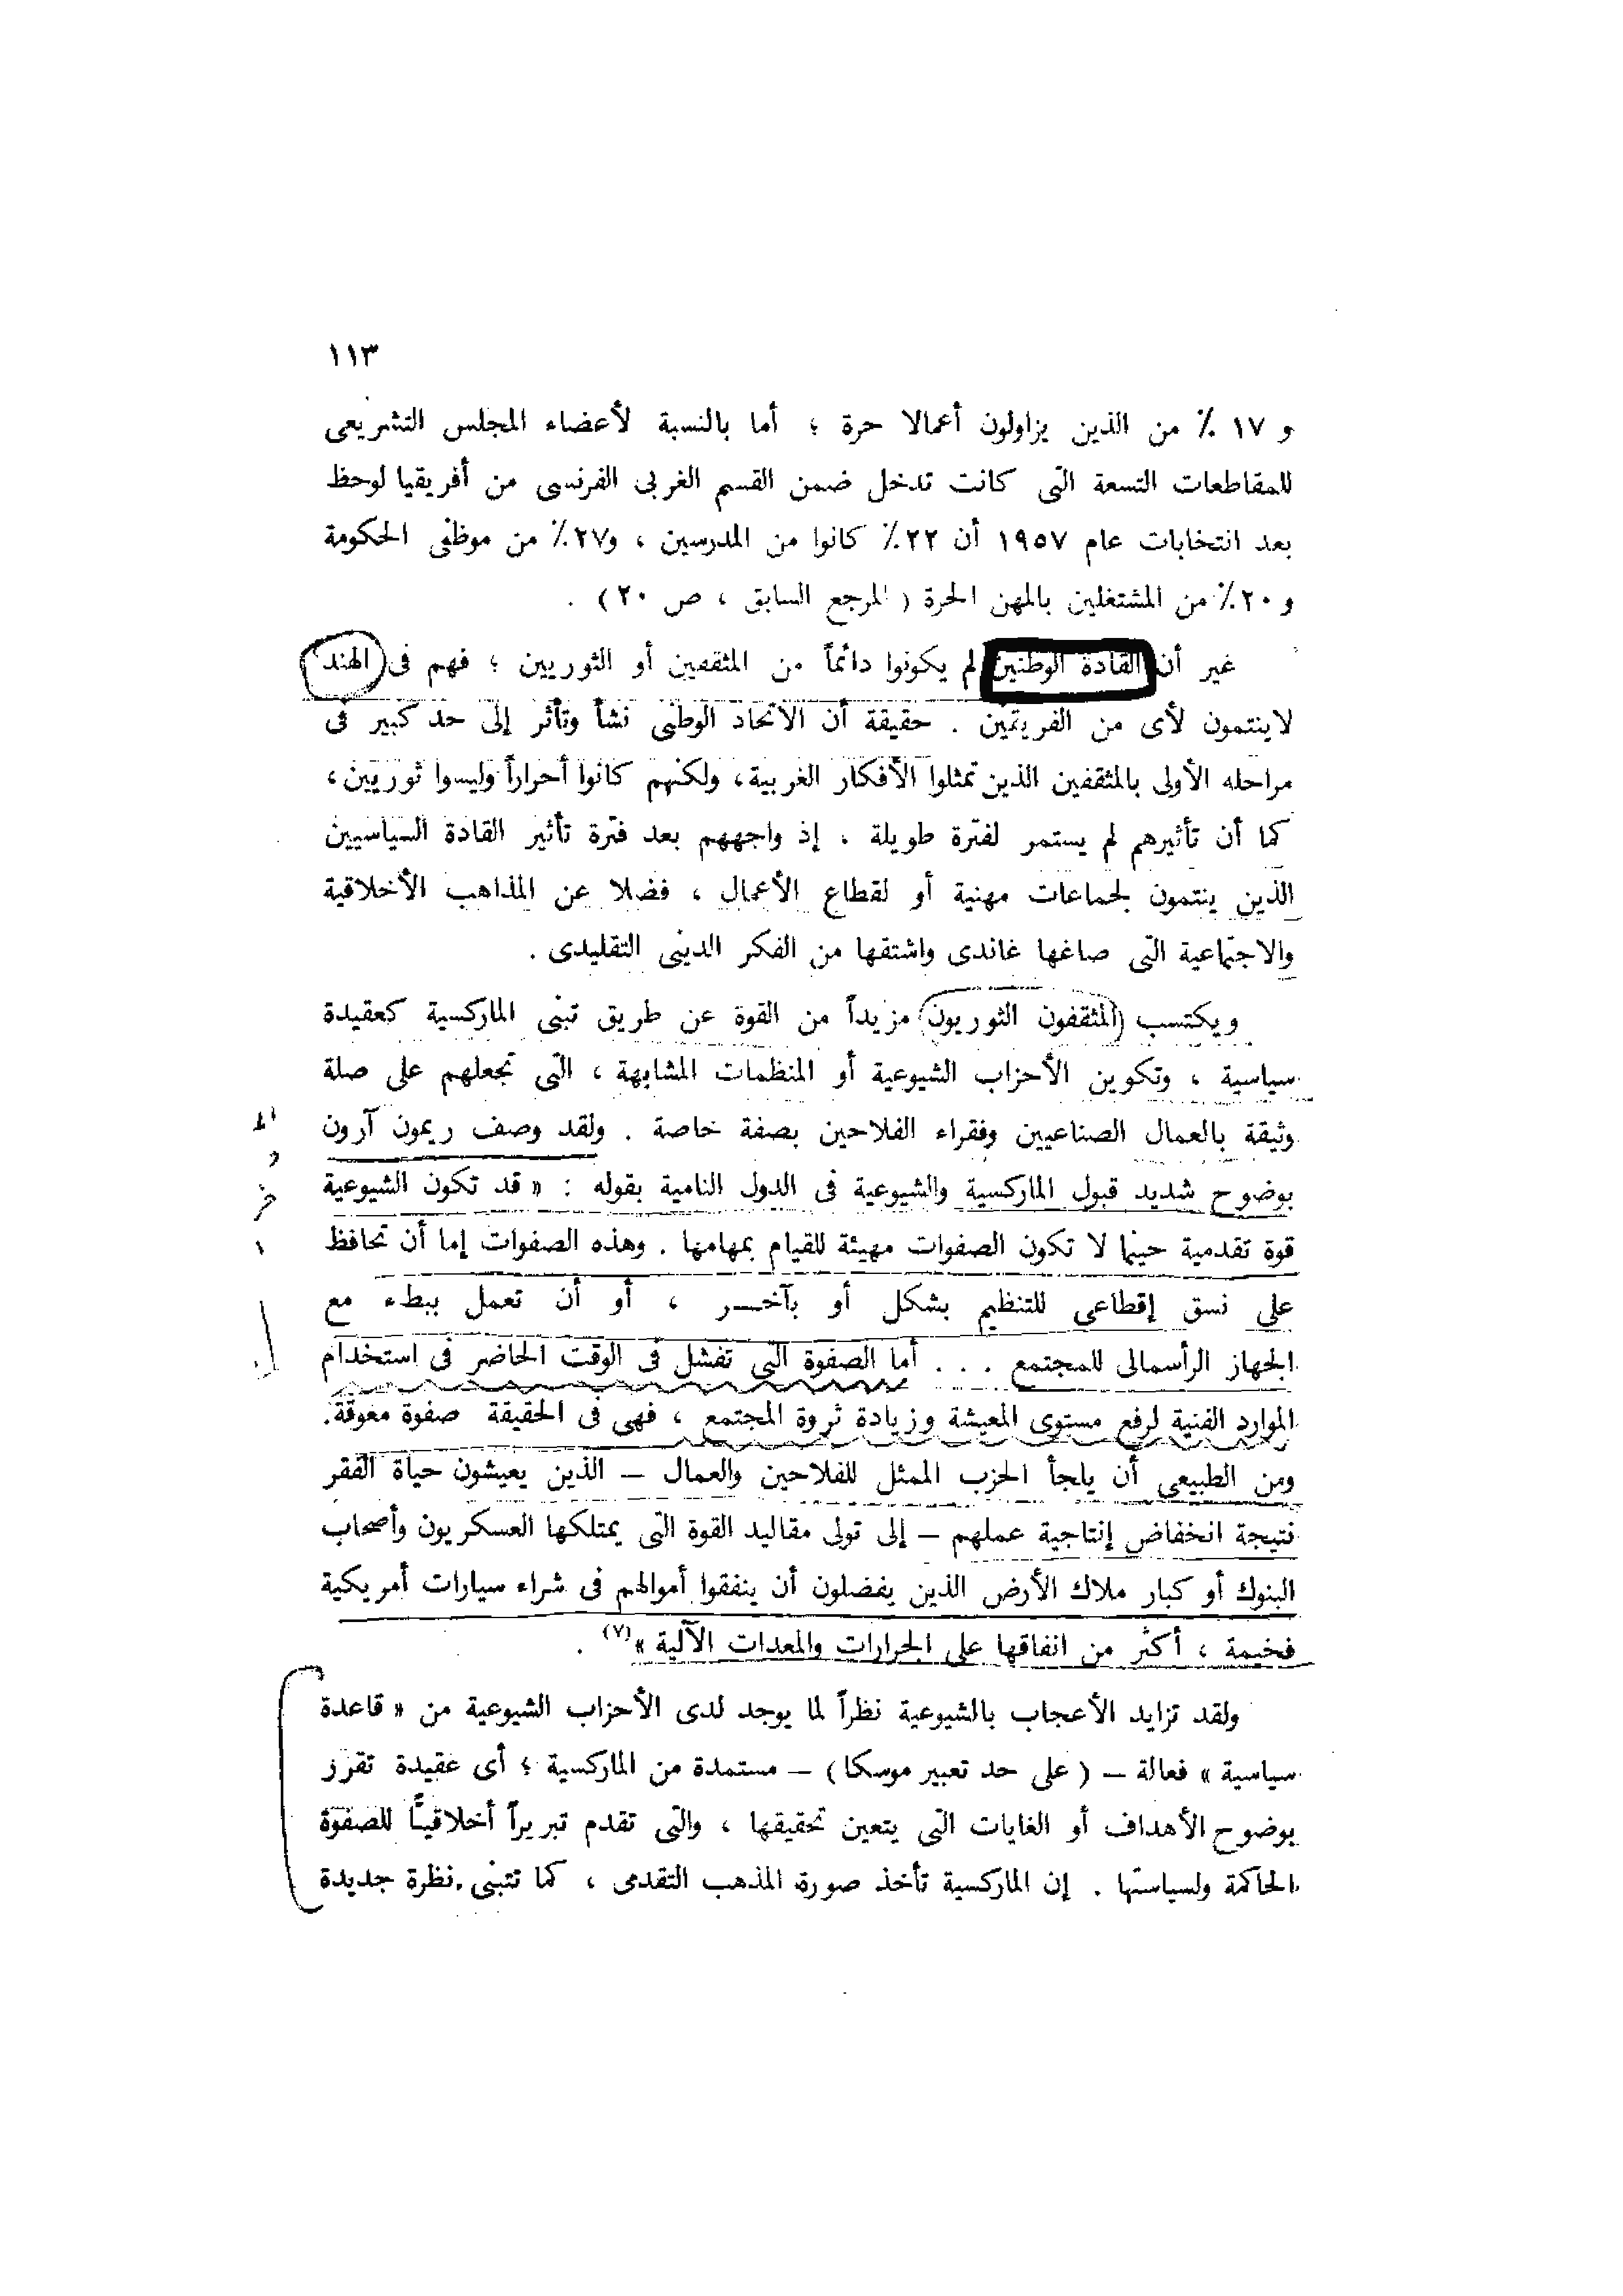 ١١٣
و ١٧ ٪ من الذين يزاولون أعمالا حرة ؛ أما بالنسبة لأعضاء المجلس التشريعى
للمقاطعات التسعة التى كانت تدخل ضمن القسم الغربى الفرنسى من أفريقيا لوحظ
بعد انتخابات عام ١٩٥٧ أن ٢٢٪ كانوا من المدرسين ، و٢٧٪ من موظفى الحكومة
و ٢٠٪ من المشتغلين بالمهن الحرة ( المرجع السابق ، ص ٢٠ ) .
غير أن القادة الوطنين لم يكونوا دائماً من المثقفين أو الثوريين ؛ فهم فى الهند
لاينتمون لأى من الفريقين . حقيقة أن الاتحاد الوطنى نشأ وتأثر إلى حد كبير فى
مراحله الأولى بالمثقفين الذين تمثلوا الأفكار الغربية ، ولكنهم كانوا أحراراً وليسوا ثوريين ،
كما أن تأثيرهم لم يستمر لفترة طويلة ، إذ واجههم بعد فترة تأثير القادة السياسيين
الذين ينتمون لجماعات مهنية أو لقطاع الأعمال ، فضلا عن المذاهب الأخلاقية
والاجتماعية التى صاغها غاندى واشتقها من الفكر الدينى التقليدى .
ويكتسب المثقفون الثوريون مزيداً من القوة عن طريق تبنى الماركسية كعقيدة
سياسية ، وتكوين الأحزاب الشيوعية أو المنظمات المشابهة ، التى تجعلهم على صلة
وثيقة بالعمال الصناعيين وفقراء الفلاحين بصفة خاصة . ولقد وصف ريمون آرون
بوضوح شديد قبول الماركسية والشيوعية فى الدول النامية بقوله : « قد تكون الشيوعية
قوة تقدمية حينما لا تكون الصفوات مهيئة للقيام بمهامها . وهذه الصفوات إما أن تحافظ
على نسق إقطاعى للتنظيم بشكل أو بآخـــر ، أو أن تعمل ببطء مع
الجهاز الرأسمالى للمجتمع . . . أما الصفوة التى تفشل فى الوقت الحاضر فى استخدام
الموارد الفنية لرفع مستوى المعيشة وزيادة ثروة المجتمع ، فهى فى الحقيقة صفوة معوقة.
ومن الطبيعى أن يلجأ الحزب الممثل للفلاحين والعمال – الذين يعيشون حياة الفقر
نتيجة انخفاض إنتاجية عملهم – إلى تولى مقاليد القوة التى يمتلكها العسكريون وأصحاب
البنوك أو كبار ملاك الأرض الذين يفضلون أن ينفقوا أموالهم فى شراء سيارات أمريكية
فخيمة ، أكثر من انفاقها على الجرارات والمعدات الآلية »(٧) .
ولقد تزايد الأعجاب بالشيوعية نظراً لما يوجد لدى الأحزاب الشيوعية من « قاعدة
سياسية » فعالة – ( على حد تعبير موسكا ) – مستمدة من الماركسية ؛ أى عقيدة تقرر
بوضوح الأهداف أو الغايات التى يتعين تحقيقها ، والتى تقدم تبريراً أخلاقيًّا للصفوة
الحاكمة ولسياستها . إن الماركسية تأخذ صورة المذهب التقدمى ، كما تتبنى نظرة جديدة